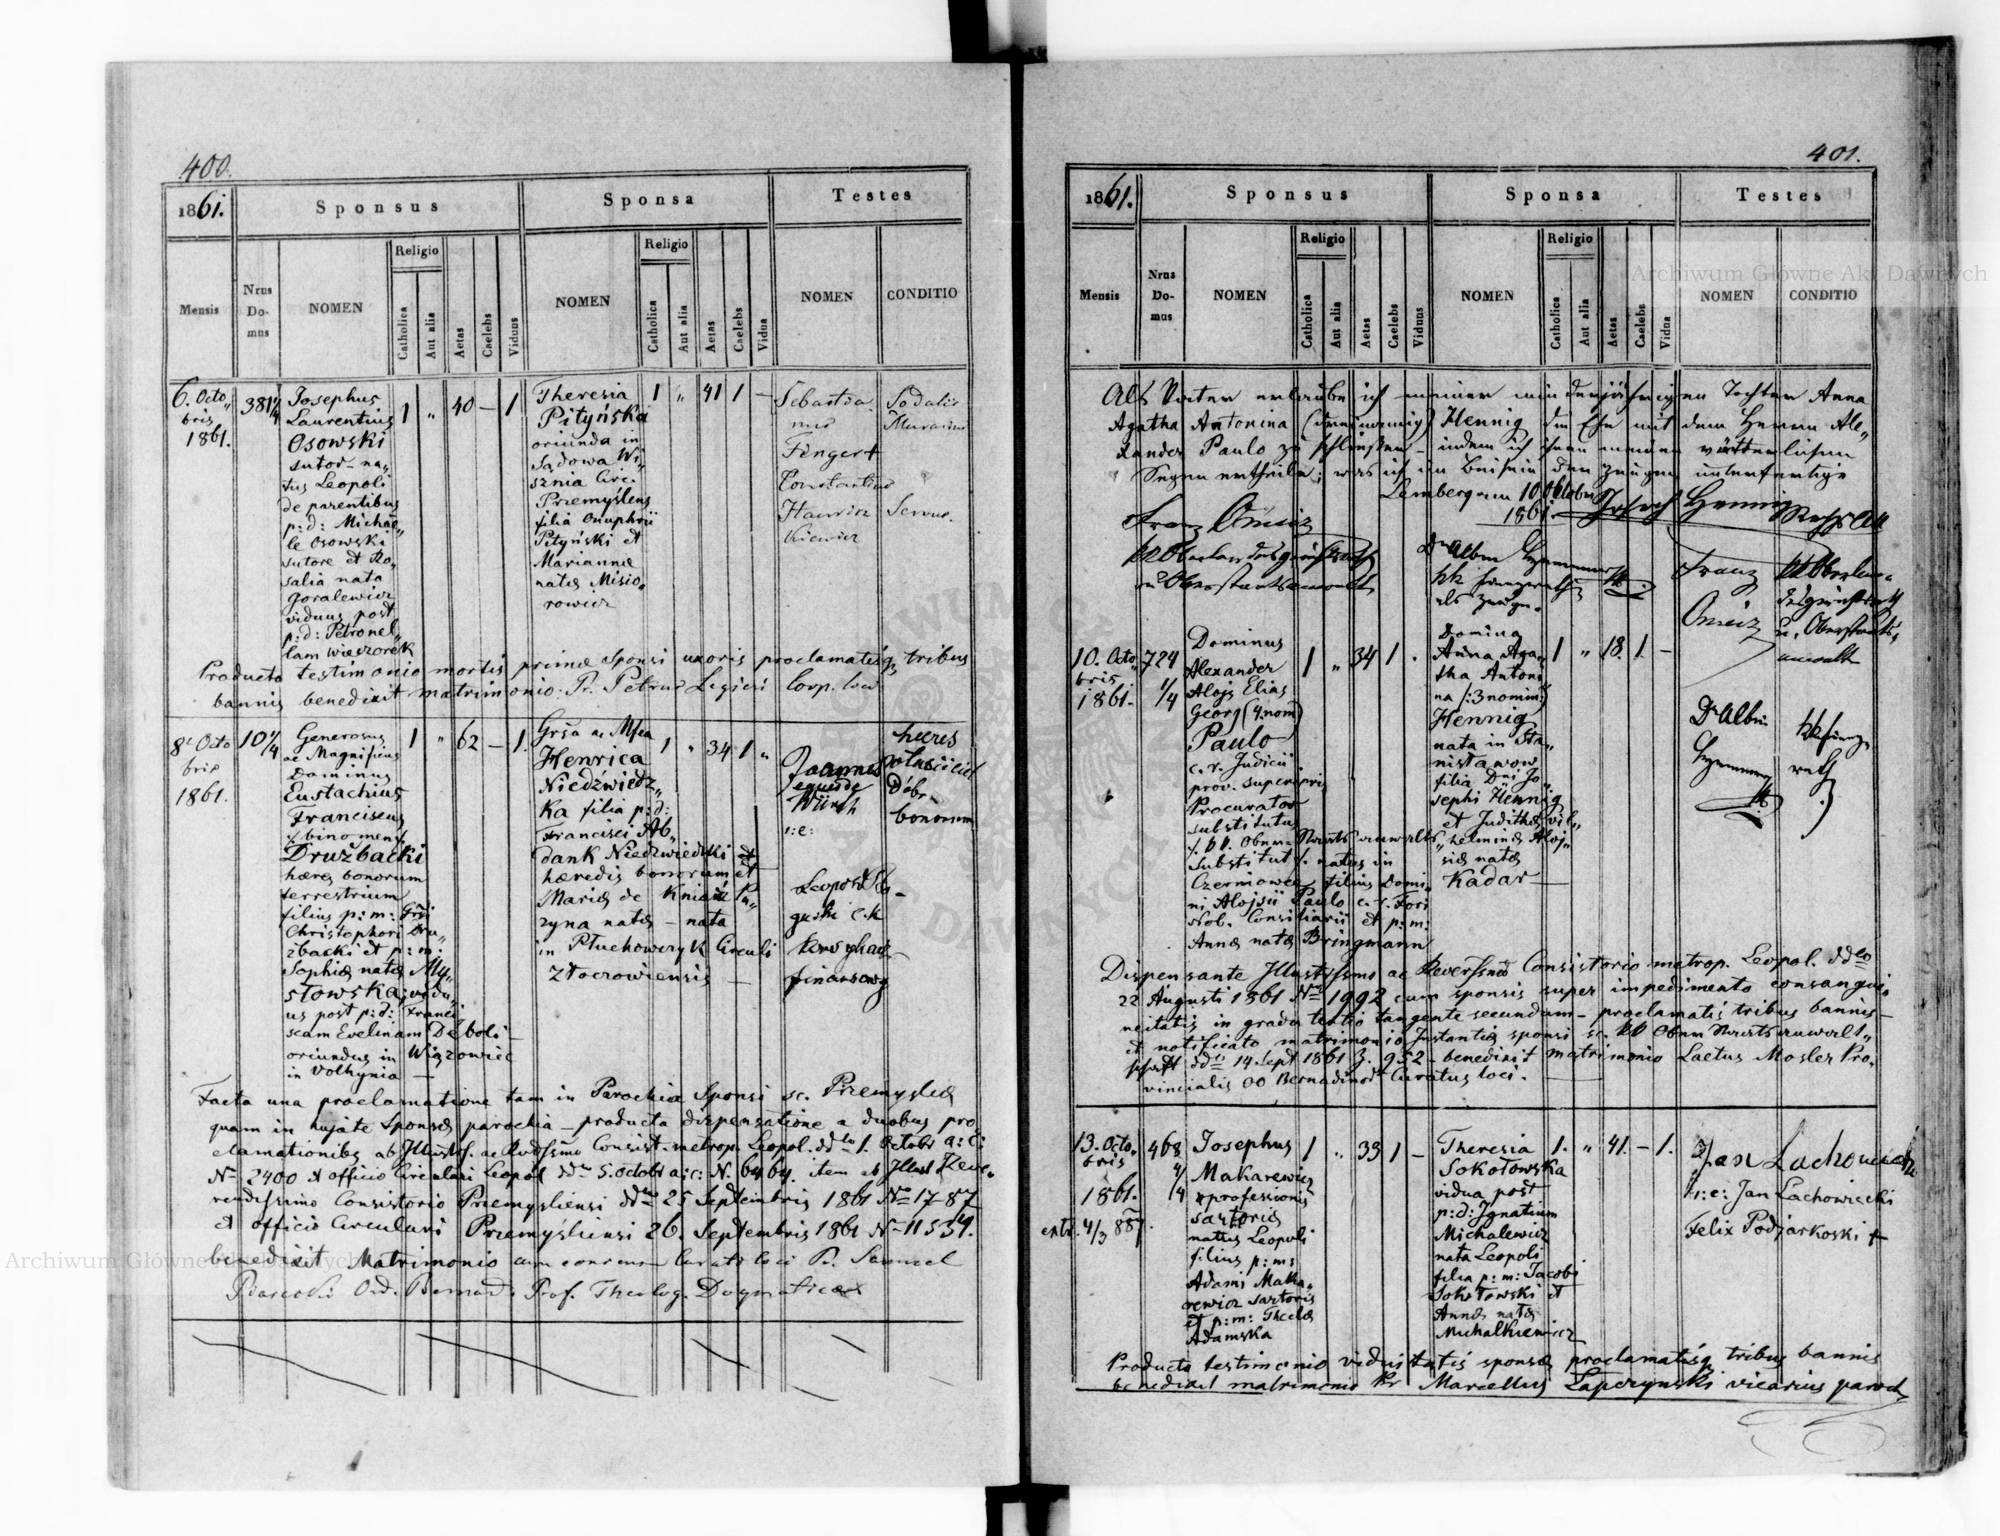 400.
1861.
Sponsus
Sponsa
Testes
Mensis
Nrus Do-
mus
NOMEN
Religio
Catholica
Aut alia
Aetas
Caelebs
Viduus
NOMEN
Religio
Catholica
Aut alia
Aetas
Caelebs
Vidua
NOMEN
CONDITIO
6. Octo„
bris
1861.
381 1/4
Josephus
Laurentius
Osowski
sutor na„
tus Leopoli
de parentibus
p: d: Michae„
le Osowski
sutore et Ro„
salia nata
Goralewicz
viduus post
p: d: Petronel„
lam Wieczorek
1 „ 40 – 1
Theresia
Pityńska
oriunda in
Sądowa Wi„
sznia Circ.
Przemyslens
filia Onuphrii
Pityński et
Mariannæ
natæ Misio„
rowicz
1 „ 41 1 –
Sebastia
nus
Fingert
Constantinus
Servus.
Producto testimonio mortis primæ sponsi uxoris proclamatisq tribus
bannis benedixit matrimonio: Pr. Petrus Coop. loci
8. Octo
bris
1861.
10 1/4
Generosus
ac Magnificus
Dominus
Eustachius
Franciscus
/: binomen :/
Drużbacki
hæres bonorum
terrestrium
filius p: m: Grsi
Christophori Dru„
żbacki et p: m:
Sophiæ natæ My„
słowska; vidu„
us post p: d: Franci„
scam Evelinam Dęboli–
oriundus in Wiązowiec
in Volhynia –
1 „ 62 – 1.
Grsa ac Mfca
Henrica
Niedźwiedz„
ka filia p: d:
Francisci Ab„
dank Niedzwiedzki et
hæredis bonorum et
Mariæ de Kniaź Pu„
zyna natæ – nata
in Płuchowczyk Circuli
Złoczowiensis –
1 „ 34 1 „
Joannes
eques de
i: e:
hæres
Dóbr
bonorum
Leopold
Facta una proclamatione tam in Parochia Sponsi sc. Przemysleæ
quam in hujate Sponsæ parochia – producta dispensatione a duobus pro
clamationibq ab Illustrs. ac Rvdsmo Consist. metrop. Leopol. ddto 1. Octobr a: c:
No 2400 et officio Circulari Leopol ddto 5. octobr a: c: N. 6464. item ab Illust Reve„
rendissimo Consistorio Przemysliensi ddto 25 Septembris 1861 No 1787
et officio Circulari Przemysliensi 26. Septembris 1861 No 11534.
benedixit Matrimonio cum consensu Curati loci Pr. Samuel
Ord. Bernard. Prof. Theolog. Dogmaticæ
401.
1861.
Sponsus
Sponsa
Testes
Mensis
Nrus
Do-
mus
NOMEN
Religio
Catholica
Aut alia
Aetas
Caelebs
Viduus
NOMEN
Religio
Catholica
Aut alia
Aetas
Caelebs
Vidua
NOMEN
CONDITIO
Als Vater erlaube ich meiner minderjährigen Tochter Anna
Agatha Antonina (dreinamig) Hennig die Ehe mit dem Herrn Ale„
xander Paulo zu schließen – indem ich ihnen meinen väterlichen
Segen ertheile; was ich im Beisein der Zeugen unterfertige
Lemberg am 10 Oktober
1861. Joseph Hennig
Franz
Dr Albin
als Zeuge.
Franz
10. Octo„
bris
1861.
724
1/4
Dominus
Alexander
Alojs Elias
Georg (4 nom)
Paulo
c. r. Judicii
prov. superioris
Procurator
substitutus
Substitut /. natus in
Czerniowce filius Domi„
ni Alojsii Paulo c. r. Fori
Nob. Consiliarii et p: m:
Annæ natæ Bringmann
1 „ 34 1 .
Domina
Anna Aga„
tha Antoni
na /: 3 nomin :/
Hennig
nata in Sta„
nisławow
filia Dni Jo„
sephi Hennig
et Judithæ vil„
helminæ Aloj„
siæ natæ
Kadar –
1 „ 18. 1. –
Dr Albin
Dispensante Illustrssmo ac Reverssmo Consistorio metrop. Leopol. ddto
22 Augusti 1861 No 1992 cum sponsis super impedimento consangui„
neitatis in gradu tertio tangente secundum – proclamatis tribus bannis –
et notificato matrimonio Instantiæ sponsi sc. kk Obern Staatsanwalt„
schaft ddto 14. Sept 1861 Z. 952 – benedixit matrimonio Laetus Mosler Pro„
vincialis OO Bernadinor Curatus loci. –
13. Octo„
bris
1861.
extr. 4/3 887.
468
2/4
Josephus
Makarewicz
professionis
sartoriæ
natus Leopoli
filius p: m:
Adami Maka„
rewicz sartoris
et p: m: Theclæ
Adamska
1 „ 33 1 –
Theresia
Sokołowska
vidua post
p: d: Ignatium
Michalewicz
nata Leopoli
filia p: m: Jacobi
Sokołowski et
Annæ natæ
Michalkiewicz
1. „ 41. – 1.
Jan Lachowiecki
i: e: Jan Lachowiecki
Felix Podjarkoski +
Producto testimonio viduitatis sponsæ proclamatisq tribus bannis
benedixit matrimonio Pr Marcellus Łapczynski vicarius paroch.
Archiwum Główne Akt Dawnych
Archiwum Główne Akt Dawnych